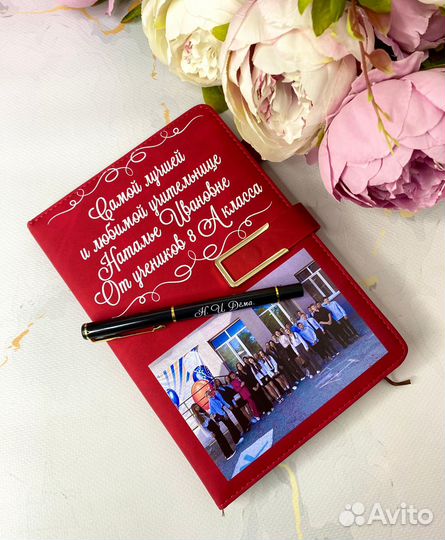 Самой лучшей
и любимой учительнице
Наталье Ивановне
От учеников 8 А класса
Н. И. Дёма
Avito